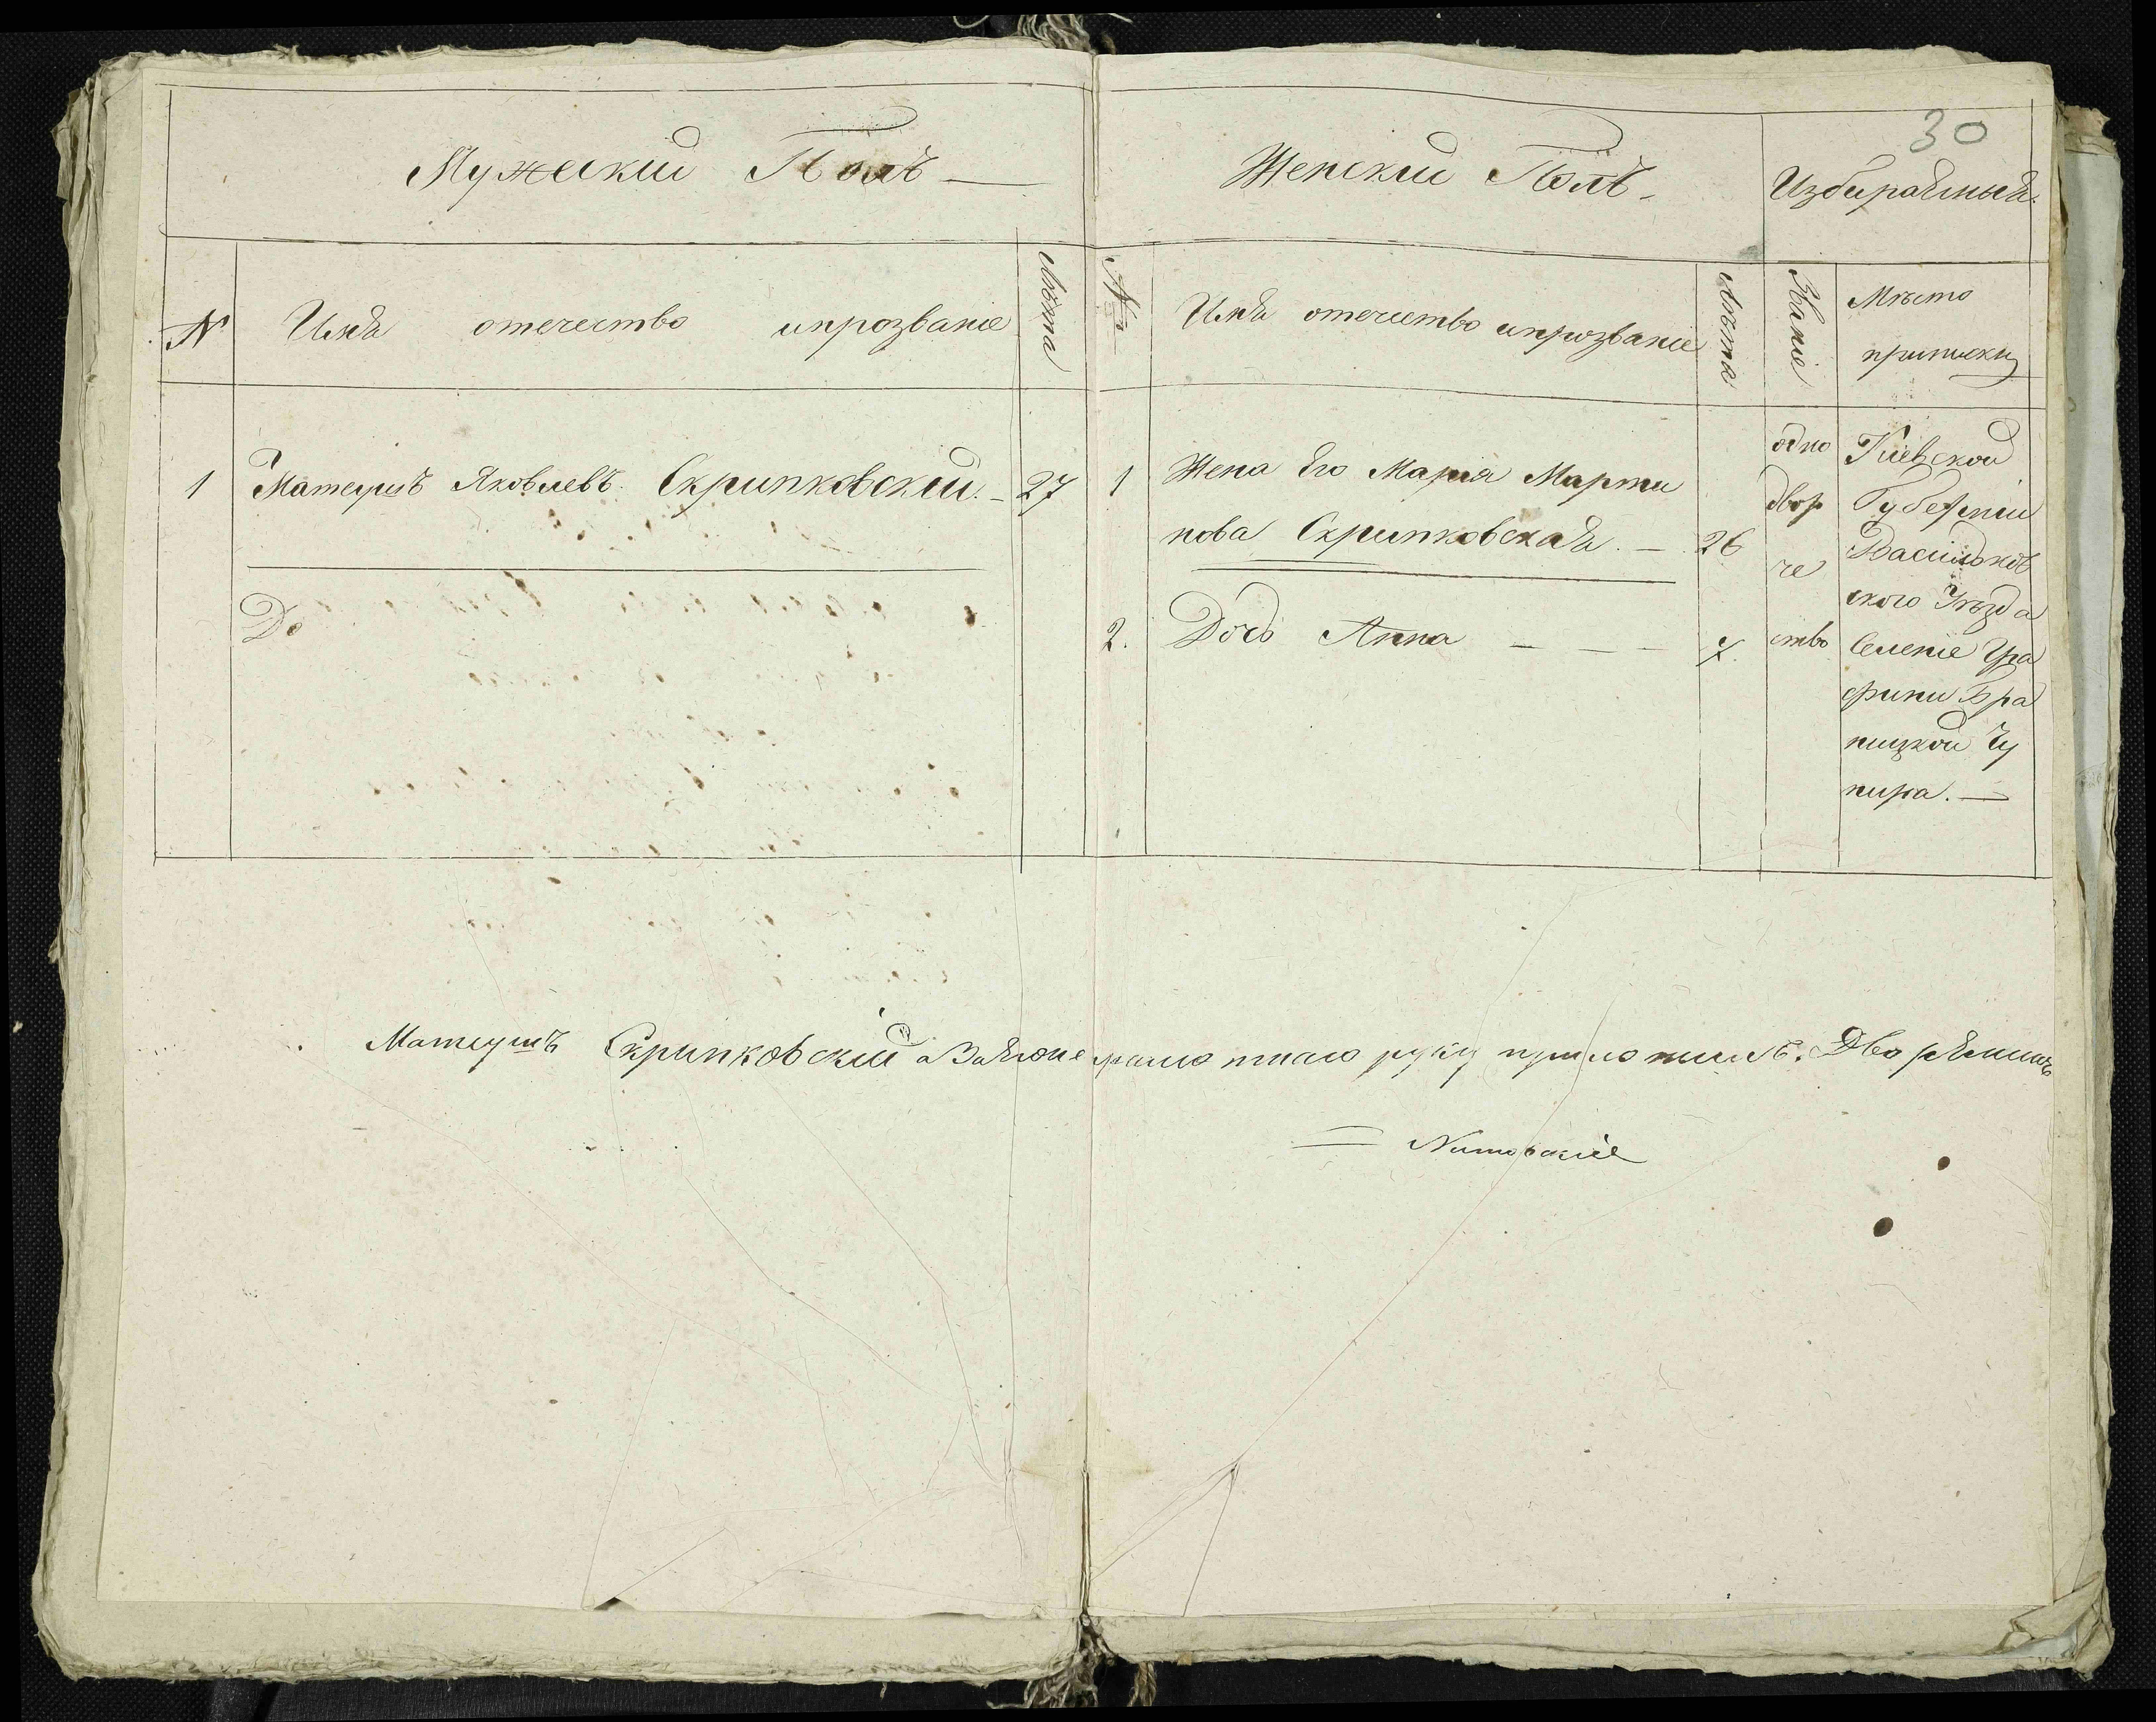 30
Мужескій Полъ —
Женскій Полъ.
Избираемый.
№ Имя отечество ипрозваніе Лѣта
№ Имя отечество ипрозваніе Лѣта Званіе Мѣсто
приписки
1 Матеушъ Яковлевъ. Скрипковскій. – 27
1 Жена Его Марія Марти
нова Скрипковская. — 26
2. Дочь Анна — — —
одно
двор
че
ство
Кіевской
Губерніи
Васильков
ского Уѣзда
Селеніе Гра
фини Бра
ницкой Чу
пира. —
До
Матеушъ Скрипковскій а За Его не грамотнаго руку приложилъ. Дворянинъ